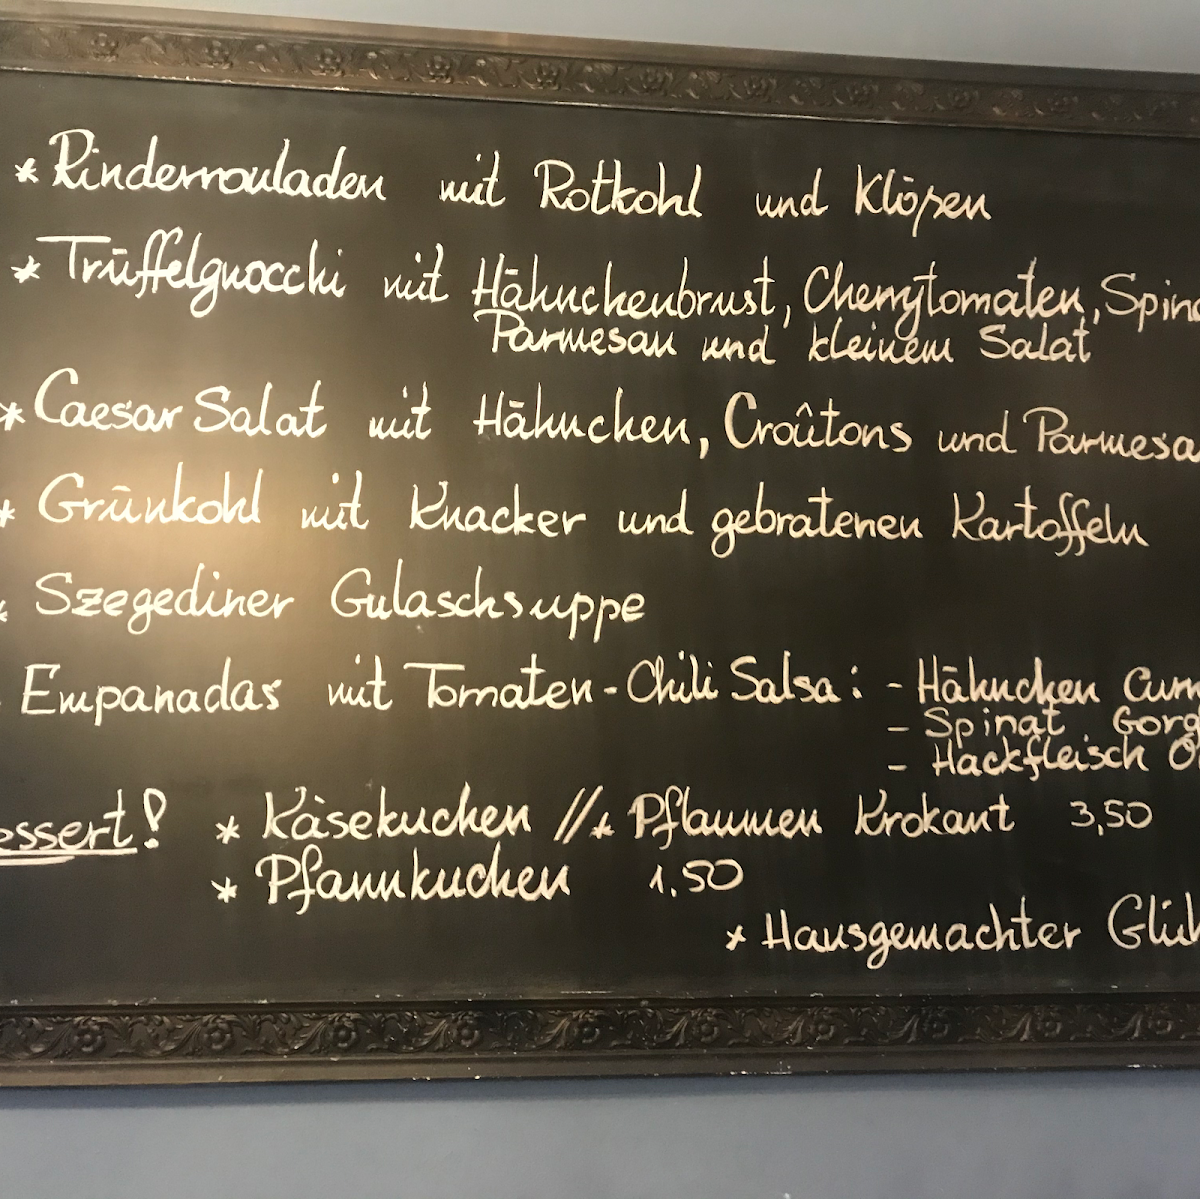 * Rinderrouladen mit Rotkohl und Klöpen
* Trüffelgnocchi mit Hähnchenbrust, Cherrytomaten, Spina
Parmesan und kleinem Salat
* Caesar Salat mit Hähnchen, Croûtons und Parmesa
* Grünkohl mit Knacker und gebratenen Kartoffeln
* Szegediner Gulaschsuppe
Empanadas mit Tomaten-Chili Salsa: - Hähnchen Cum
- Spinat Gorg
- Hackfleisch
essert! * Käsekuchen // * Pflaumen Krokant 3,50
* Pfannkuchen 1,50
* Hausgemachter Glüh